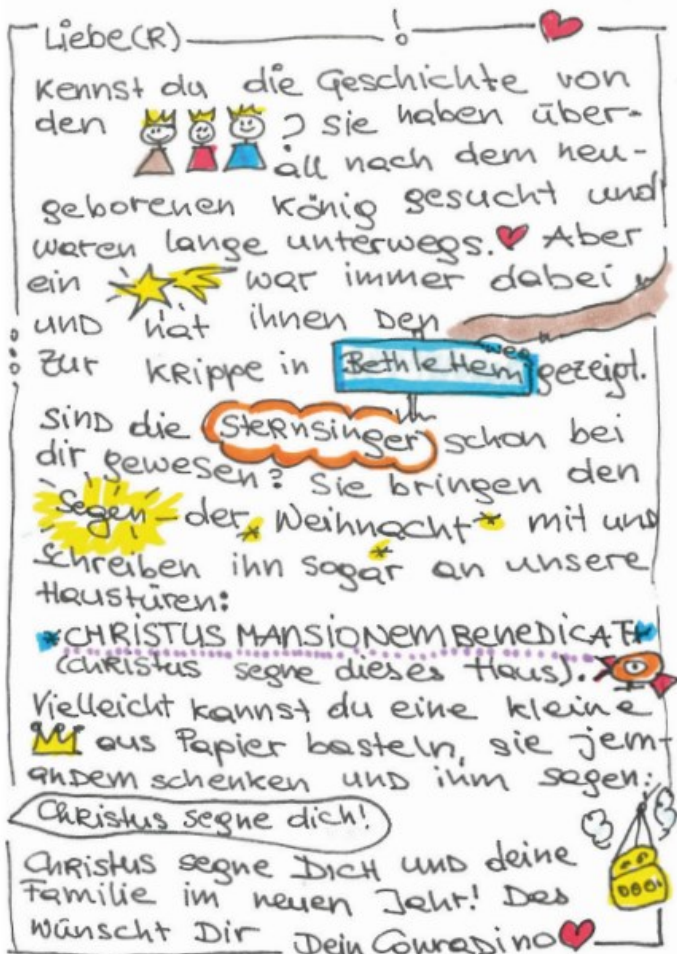 Liebe(R)
Kennst du die Geschichte von
den ? Sie haben über-
all nach dem neu-
geborenen König gesucht und
waren lange unterwegs. Aber
ein war immer dabei
und hat ihnen den
weg
zur Krippe in Bethlehem gezeigt.
Sind die Sternsinger schon bei
dir gewesen? Sie bringen den
Segen der Weihnacht mit und
schreiben ihn sogar an unsere
Haustüren:
*CHRISTUS MANSIONEM BENEDICAT*
(Christus segne dieses Haus).
Vielleicht kannst du eine kleine
aus Papier basteln, sie jem-
andem schenken und ihm sagen:
Christus segne dich!
Christus segne DICH und deine
Familie im neuen Jahr! Das
wünscht Dir Dein Conradino